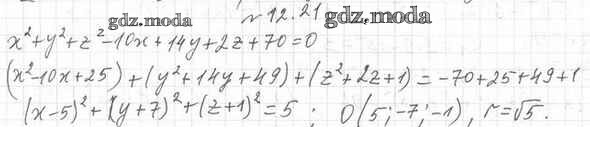 gdz.moda № 12.21 gdz.moda
x²+y²+z²-10x+14y+2z+70=0
(x²-10x+25)+(y²+14y+49)+(z²+2z+1)=-70+25+49+1
(x-5)²+(y+7)²+(z+1)²=5; O(5;-7;-1), r=√5.